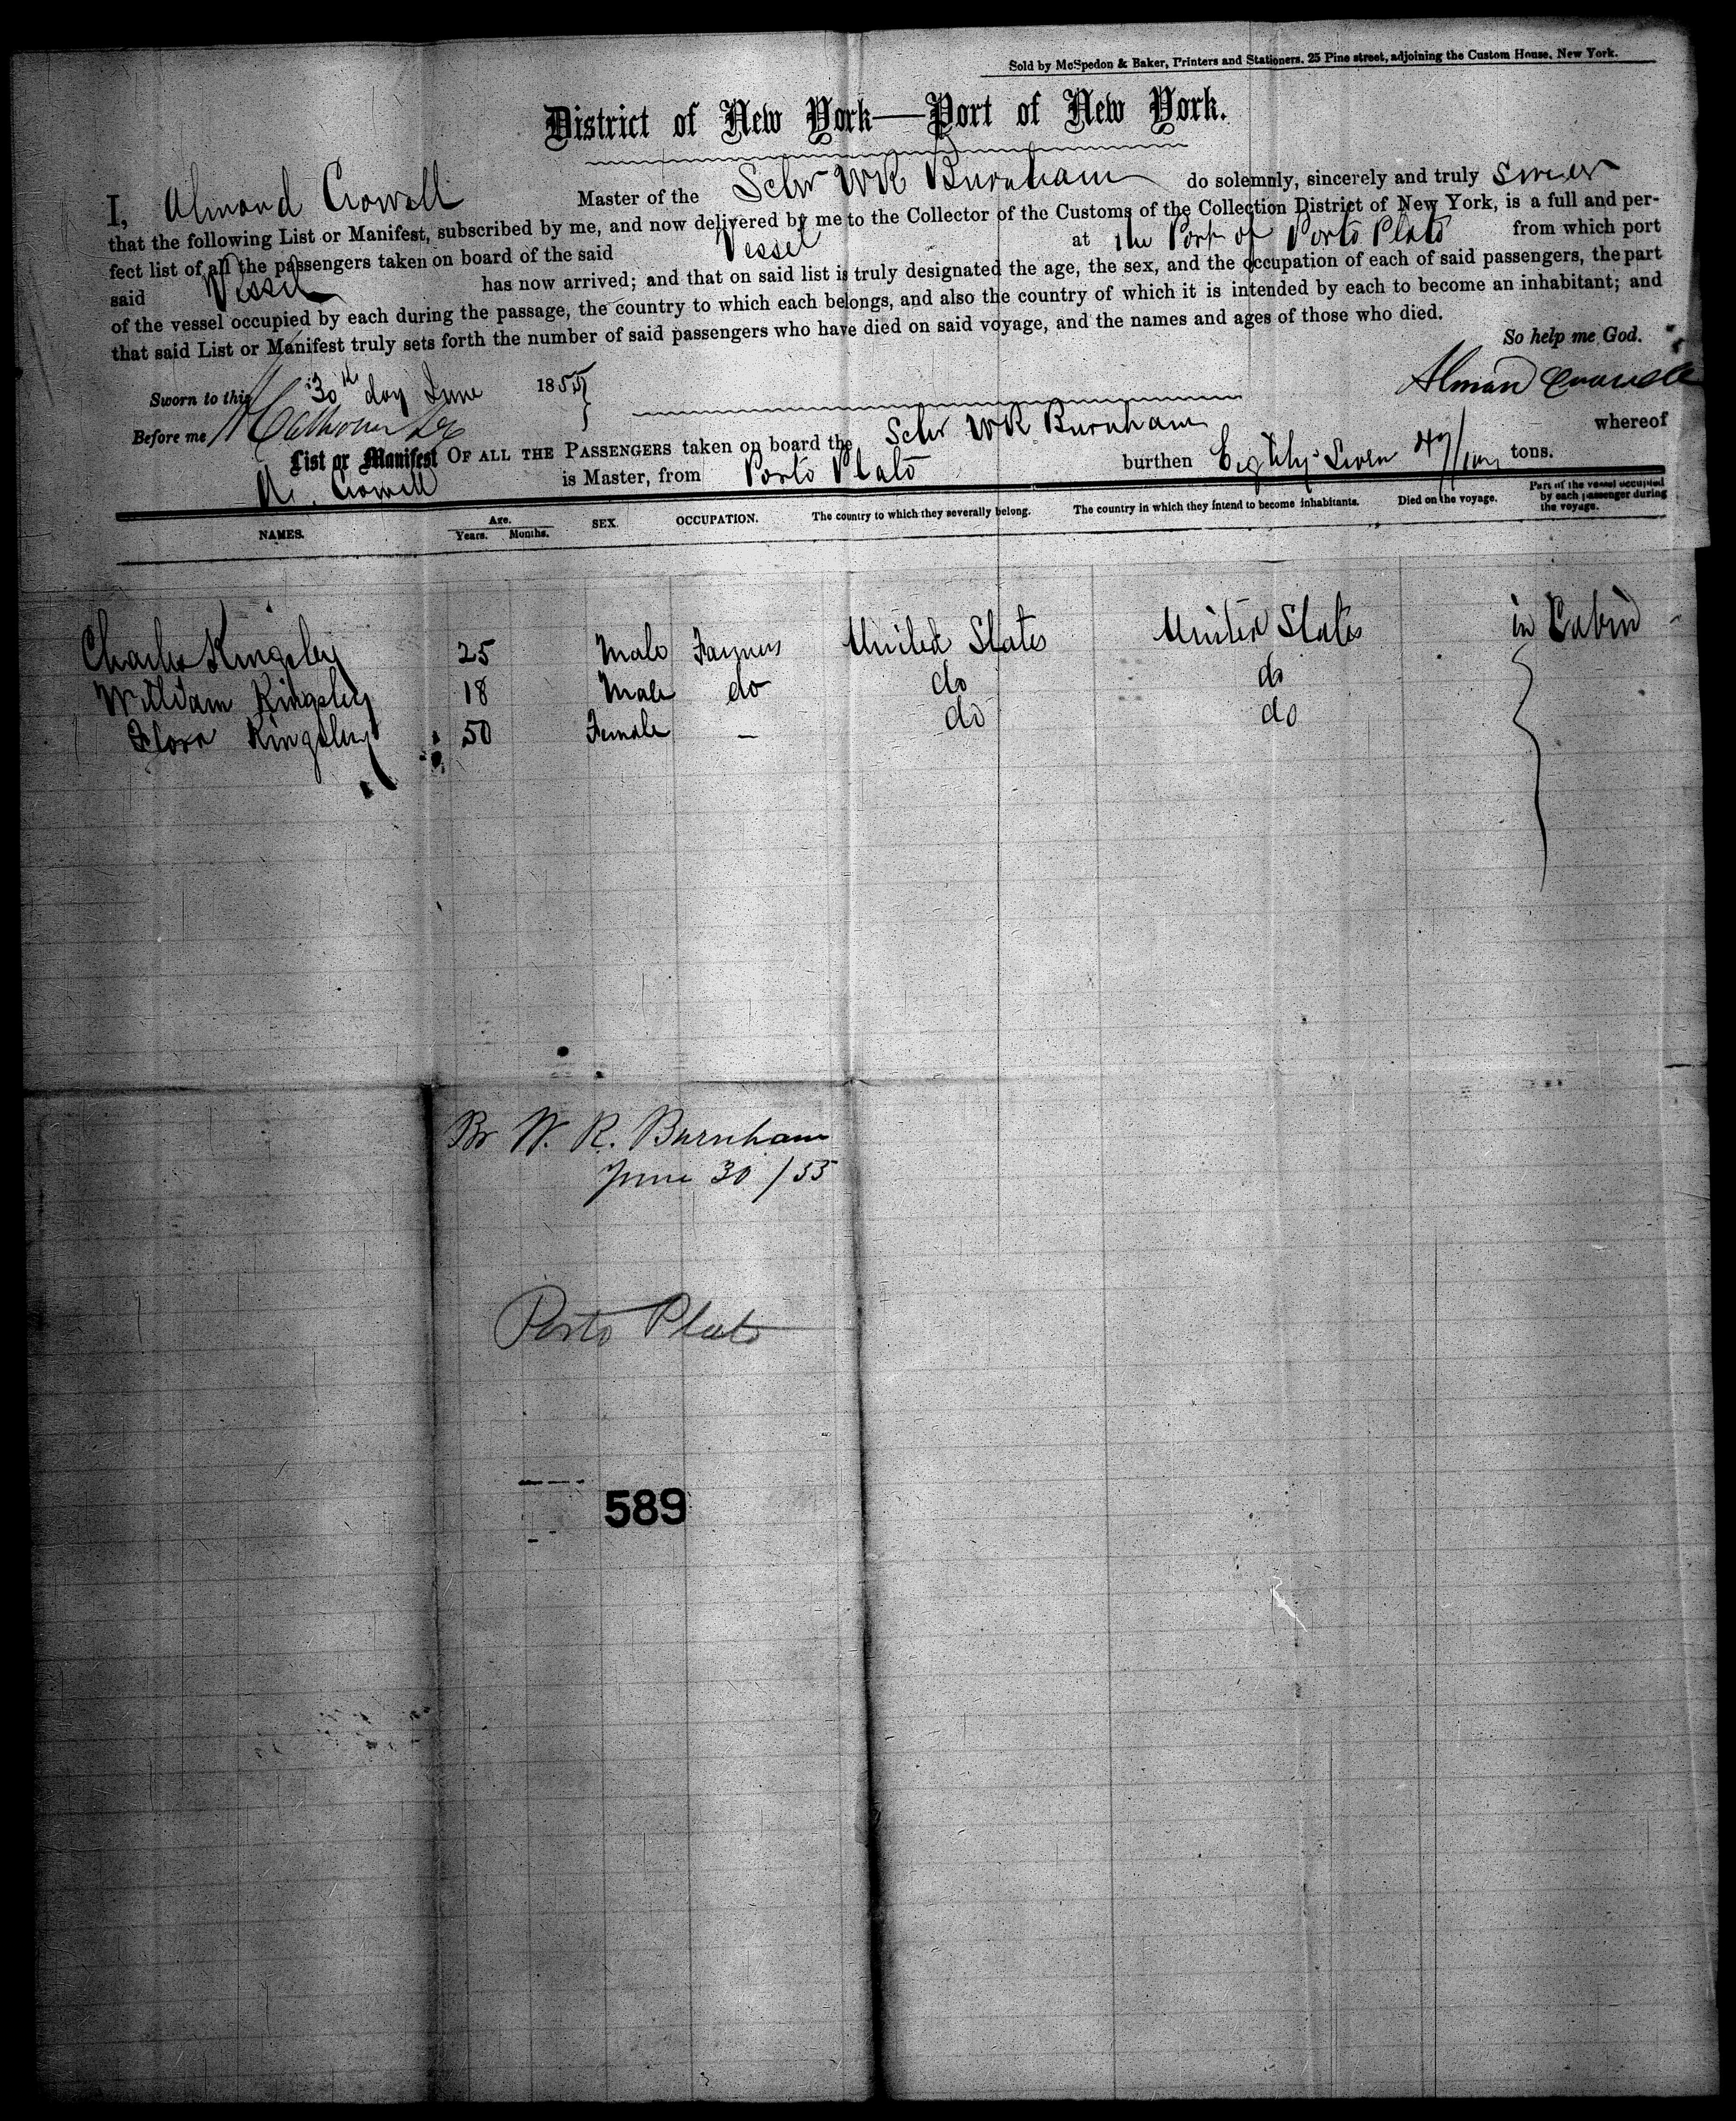 Sold by McSpedon & Baker, Printers and Stationers, 25 Pine street, adjoining the Custom House, New York.
District of New York—Port of New York.
I, Almond Crowell Master of the Schr WR Burnham do solemnly, sincerely and truly Swear
that the following List or Manifest, subscribed by me, and now delivered by me to the Collector of the Customs of the Collection District of New York, is a full and per-
fect list of all the passengers taken on board of the said Vessel at the Port of Porto Plato from which port
said Vessel has now arrived; and that on said list is truly designated the age, the sex, and the occupation of each of said passengers, the part
of the vessel occupied by each during the passage, the country to which each belongs, and also the country of which it is intended by each to become an inhabitant; and
that said List or Manifest truly sets forth the number of said passengers who have died on said voyage, and the names and ages of those who died.
So help me God.
Sworn to this 30th day June 1855
Alman Crowell
Before me
List or Manifest OF ALL THE PASSENGERS taken on board the Schr WR Burnham whereof
A. Crowell is Master, from Porto Plato burthen Eighty Seven 47/100 tons.
NAMES. Age. Years. Months. SEX. OCCUPATION. The country to which they severally belong. The country in which they intend to become inhabitants. Died on the voyage. Part of the vessel occupied by each passenger during the voyage.
Charles Kingsley 25 Male Farmers United States United States in Cabin
William Kingsley 18 Male do do do
Flora Kingsley 50 Female — do do
Br W. R. Burnham
June 30 / 55
Porto Plato
589